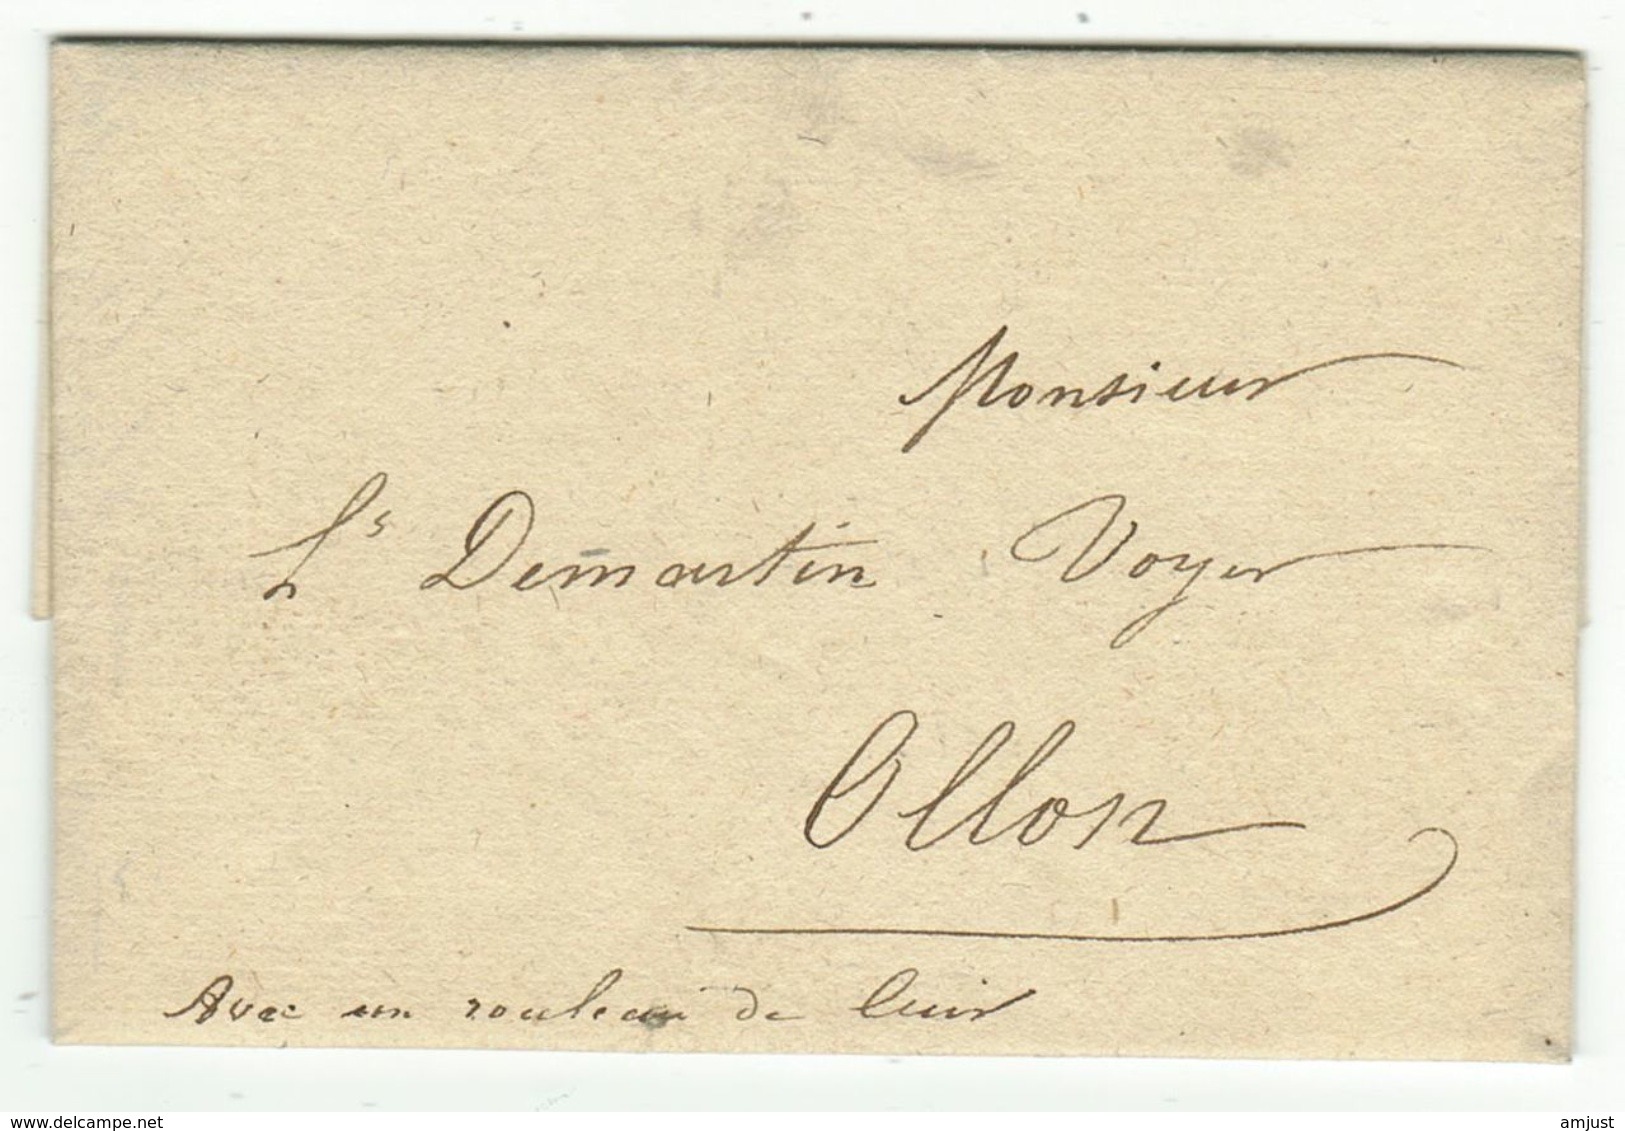 Monsieur
Ls Demartin Voyer
Ollon
Avec un rouleau de Cuir
delcampe.net
amjust